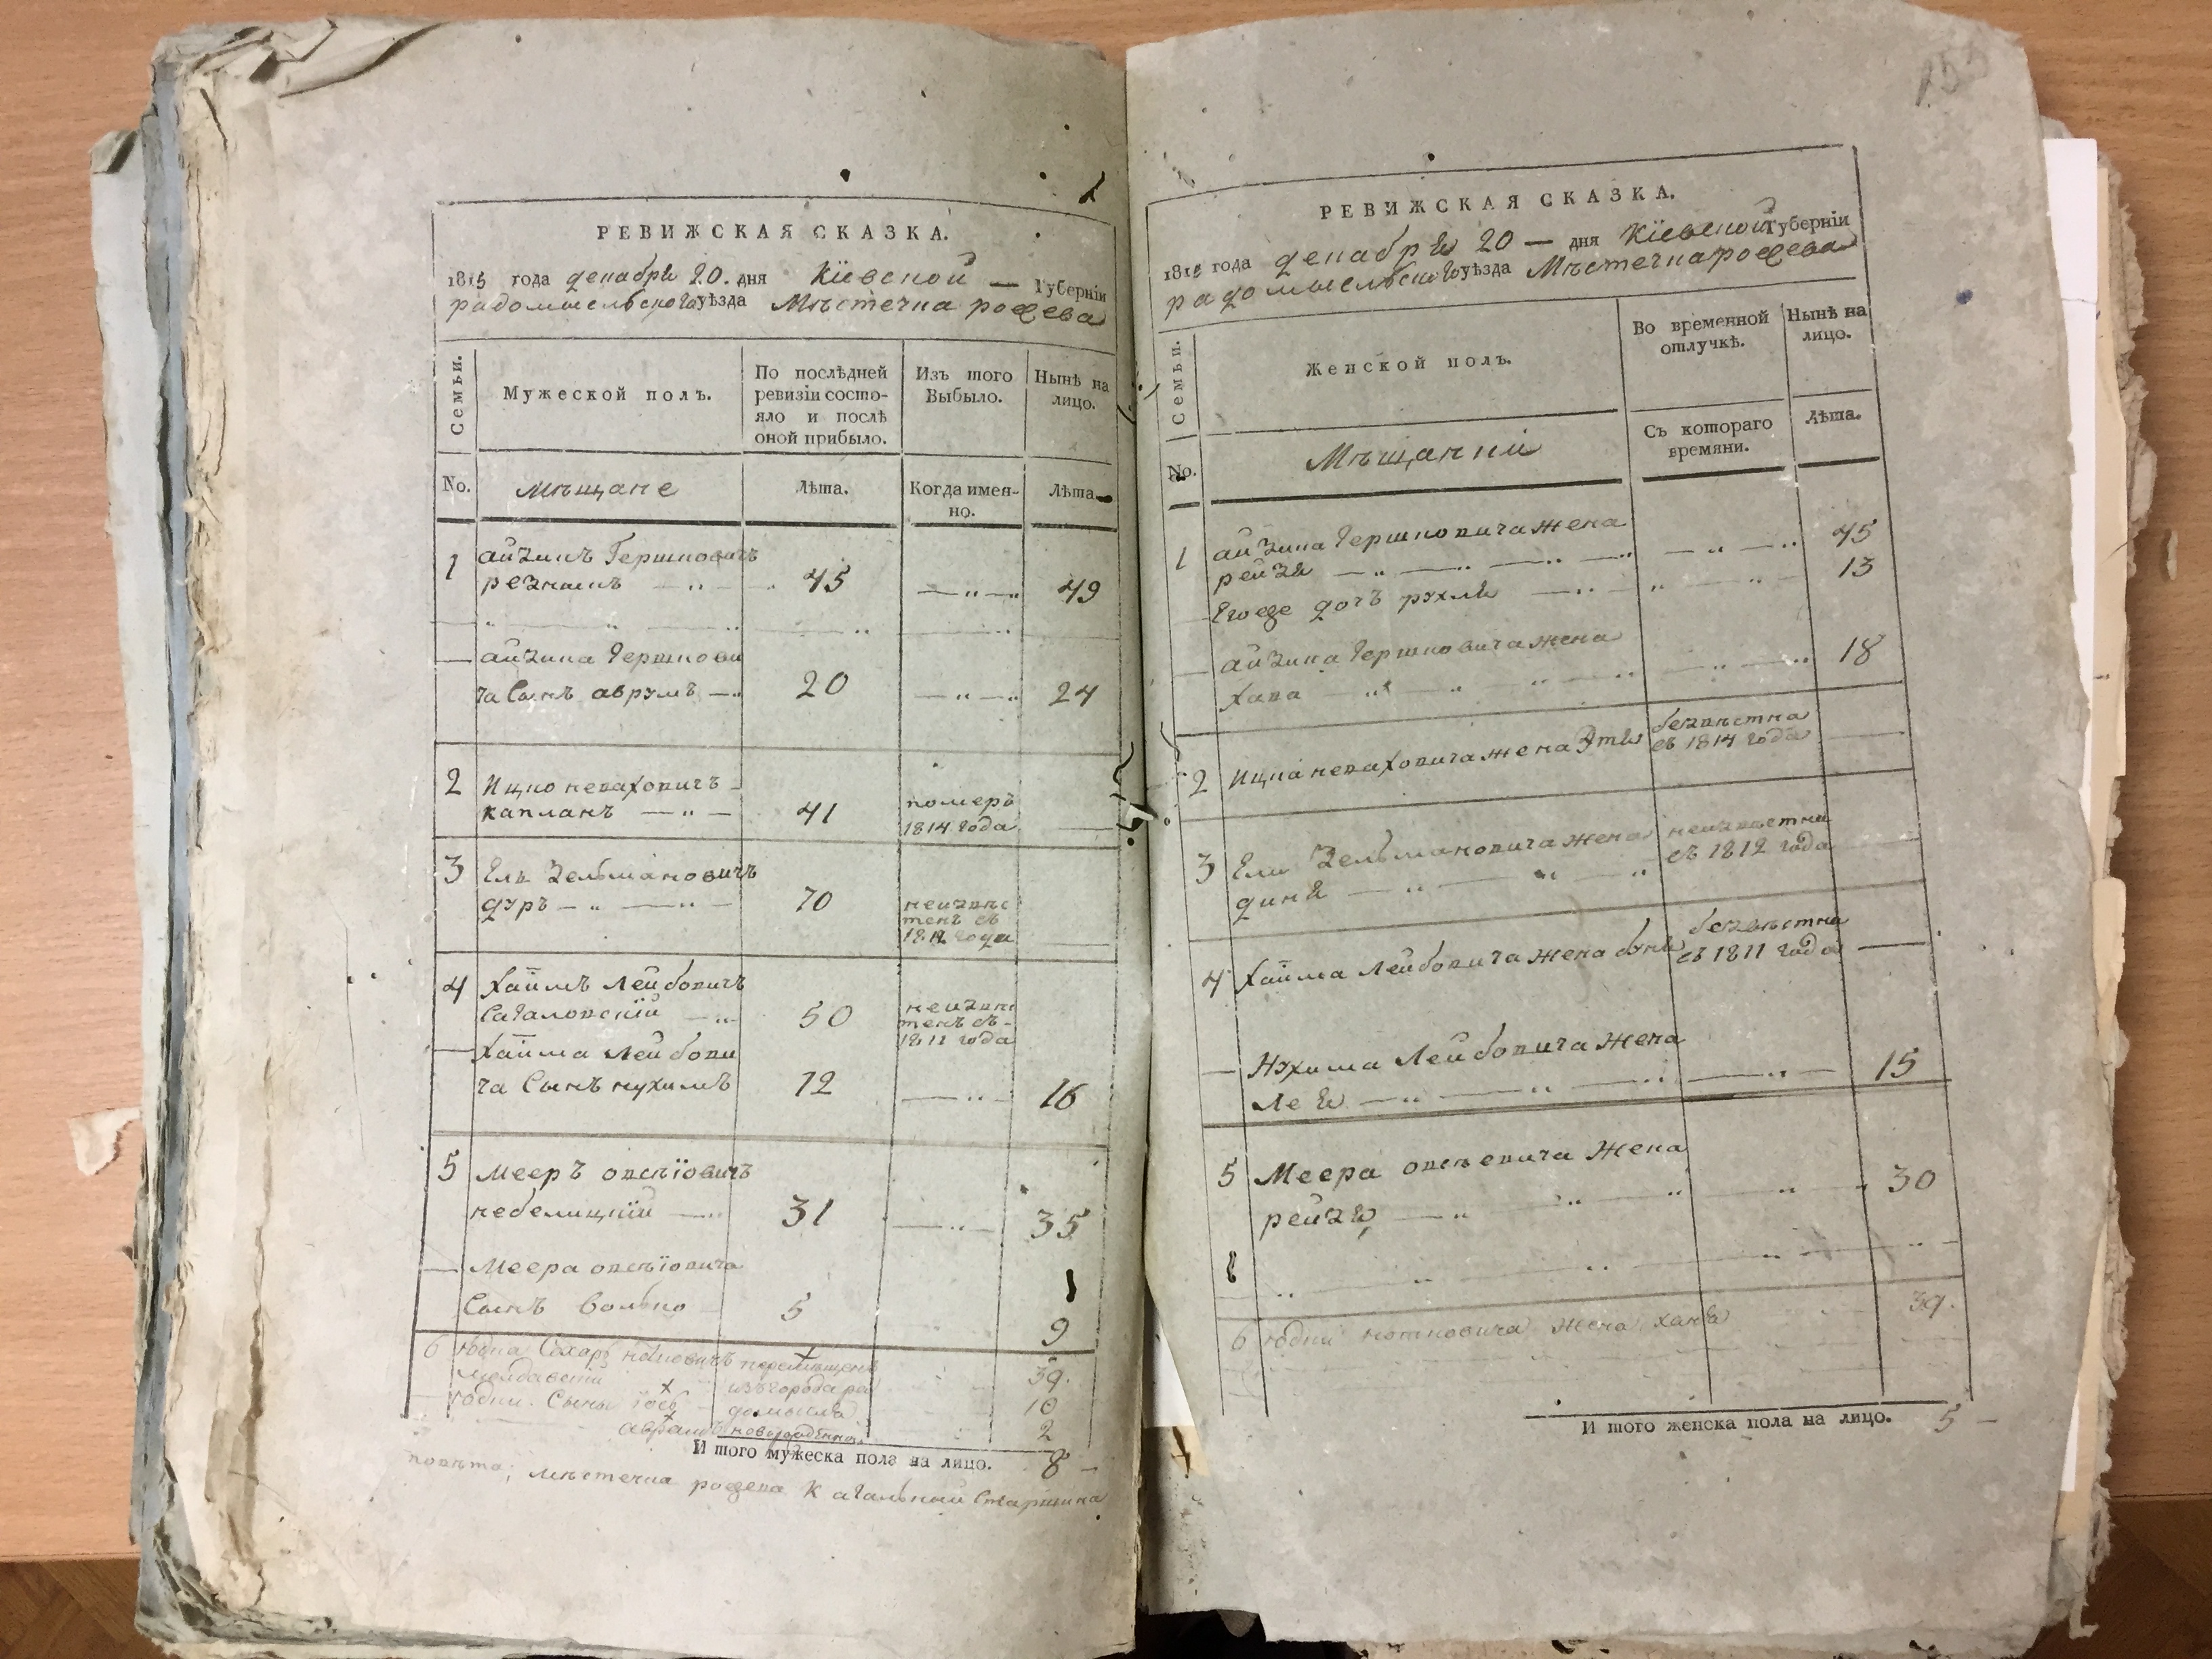 РЕВИЖСКАЯ СКАЗКА.
1815 года декабря 20. дня Кіевской — Губерніи
радомысльского уѣзда Мѣстечка рожева
Семьи.
Мужеской полъ.
По послѣдней
ревизіи состо-
яло и послѣ
оной прибыло.
Изъ того
Выбыло.
Нынѣ на
лицо.
No.
мѣщане
Лѣта.
Когда имен-
но.
Лѣта
1 айзикъ Гершковичъ
резникъ 45 49
айзика Гершкови
ча Сынъ аврумъ 20 24
2 Ицко невахович
капланъ 41 померъ
1814 года
3 Ель Зельмановичъ
дуръ 70 неизвѣс
тенъ съ
1812 года
4 Хаимъ Лейбовичъ
Сагаловскій 50 неизвѣс
тенъ съ
1811 года
Хаима Лейбови
ча Сынъ нухимъ 12 16
5 Мееръ овсѣіовичъ
небелицкій 31 35
Меера овсѣіовича
Сынъ Волько 5 9
6 юдка перемѣщенъ 39.
изъ города ра
юдки Сыны домысля 10
аврамъ новорожденной 2
И того мужеска пола на лицо. 8 —
мѣстечка рожева Кагальный Старшина
155
РЕВИЖСКАЯ СКАЗКА.
1815 года декабря 20 — дня Кіевской Губерніи
радомысльского уѣзда Мѣстечка рожева
Семьи.
Женской полъ.
Во временной
отлучкѣ.
Нынѣ на
лицо.
No.
Мѣщанкіи
Съ котораго
времяни.
Лѣта.
1 айзика Гершковича жена
рейзя 45
Егоже дочъ рухля 13
айзика Гершковича жена
Хава 18
2 Ицка неваховича жена Этя безвѣстна
съ 1814 года
3 Еля Зельмановича жена неизвѣстна
съ 1812 года
диня
4 Хаима Лейбовича жена буня безвѣстна
съ 1811 года
Нухима Лейбовича жена
Лея 15
5 Меера овсѣевича Жена
рейзя 30
6 юдки нотковича жена ханя 39.
И того женска пола на лицо. 5 —